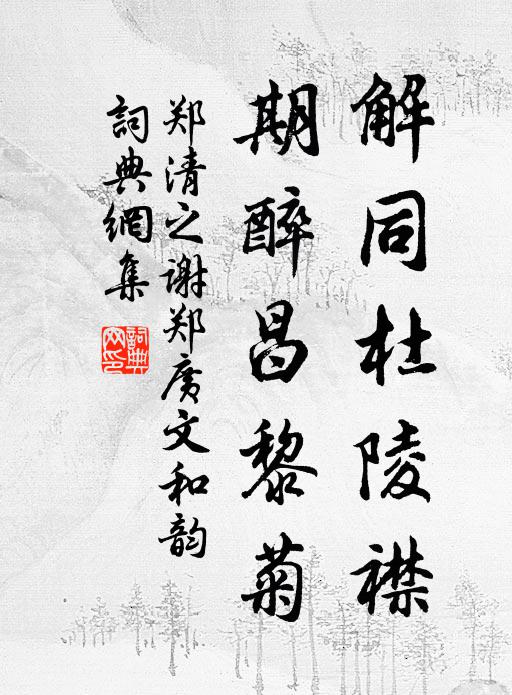 解同杜陵襟
期醉昌黎菊
郑清之谢郑广文和韵
詞典網集
詞典網印